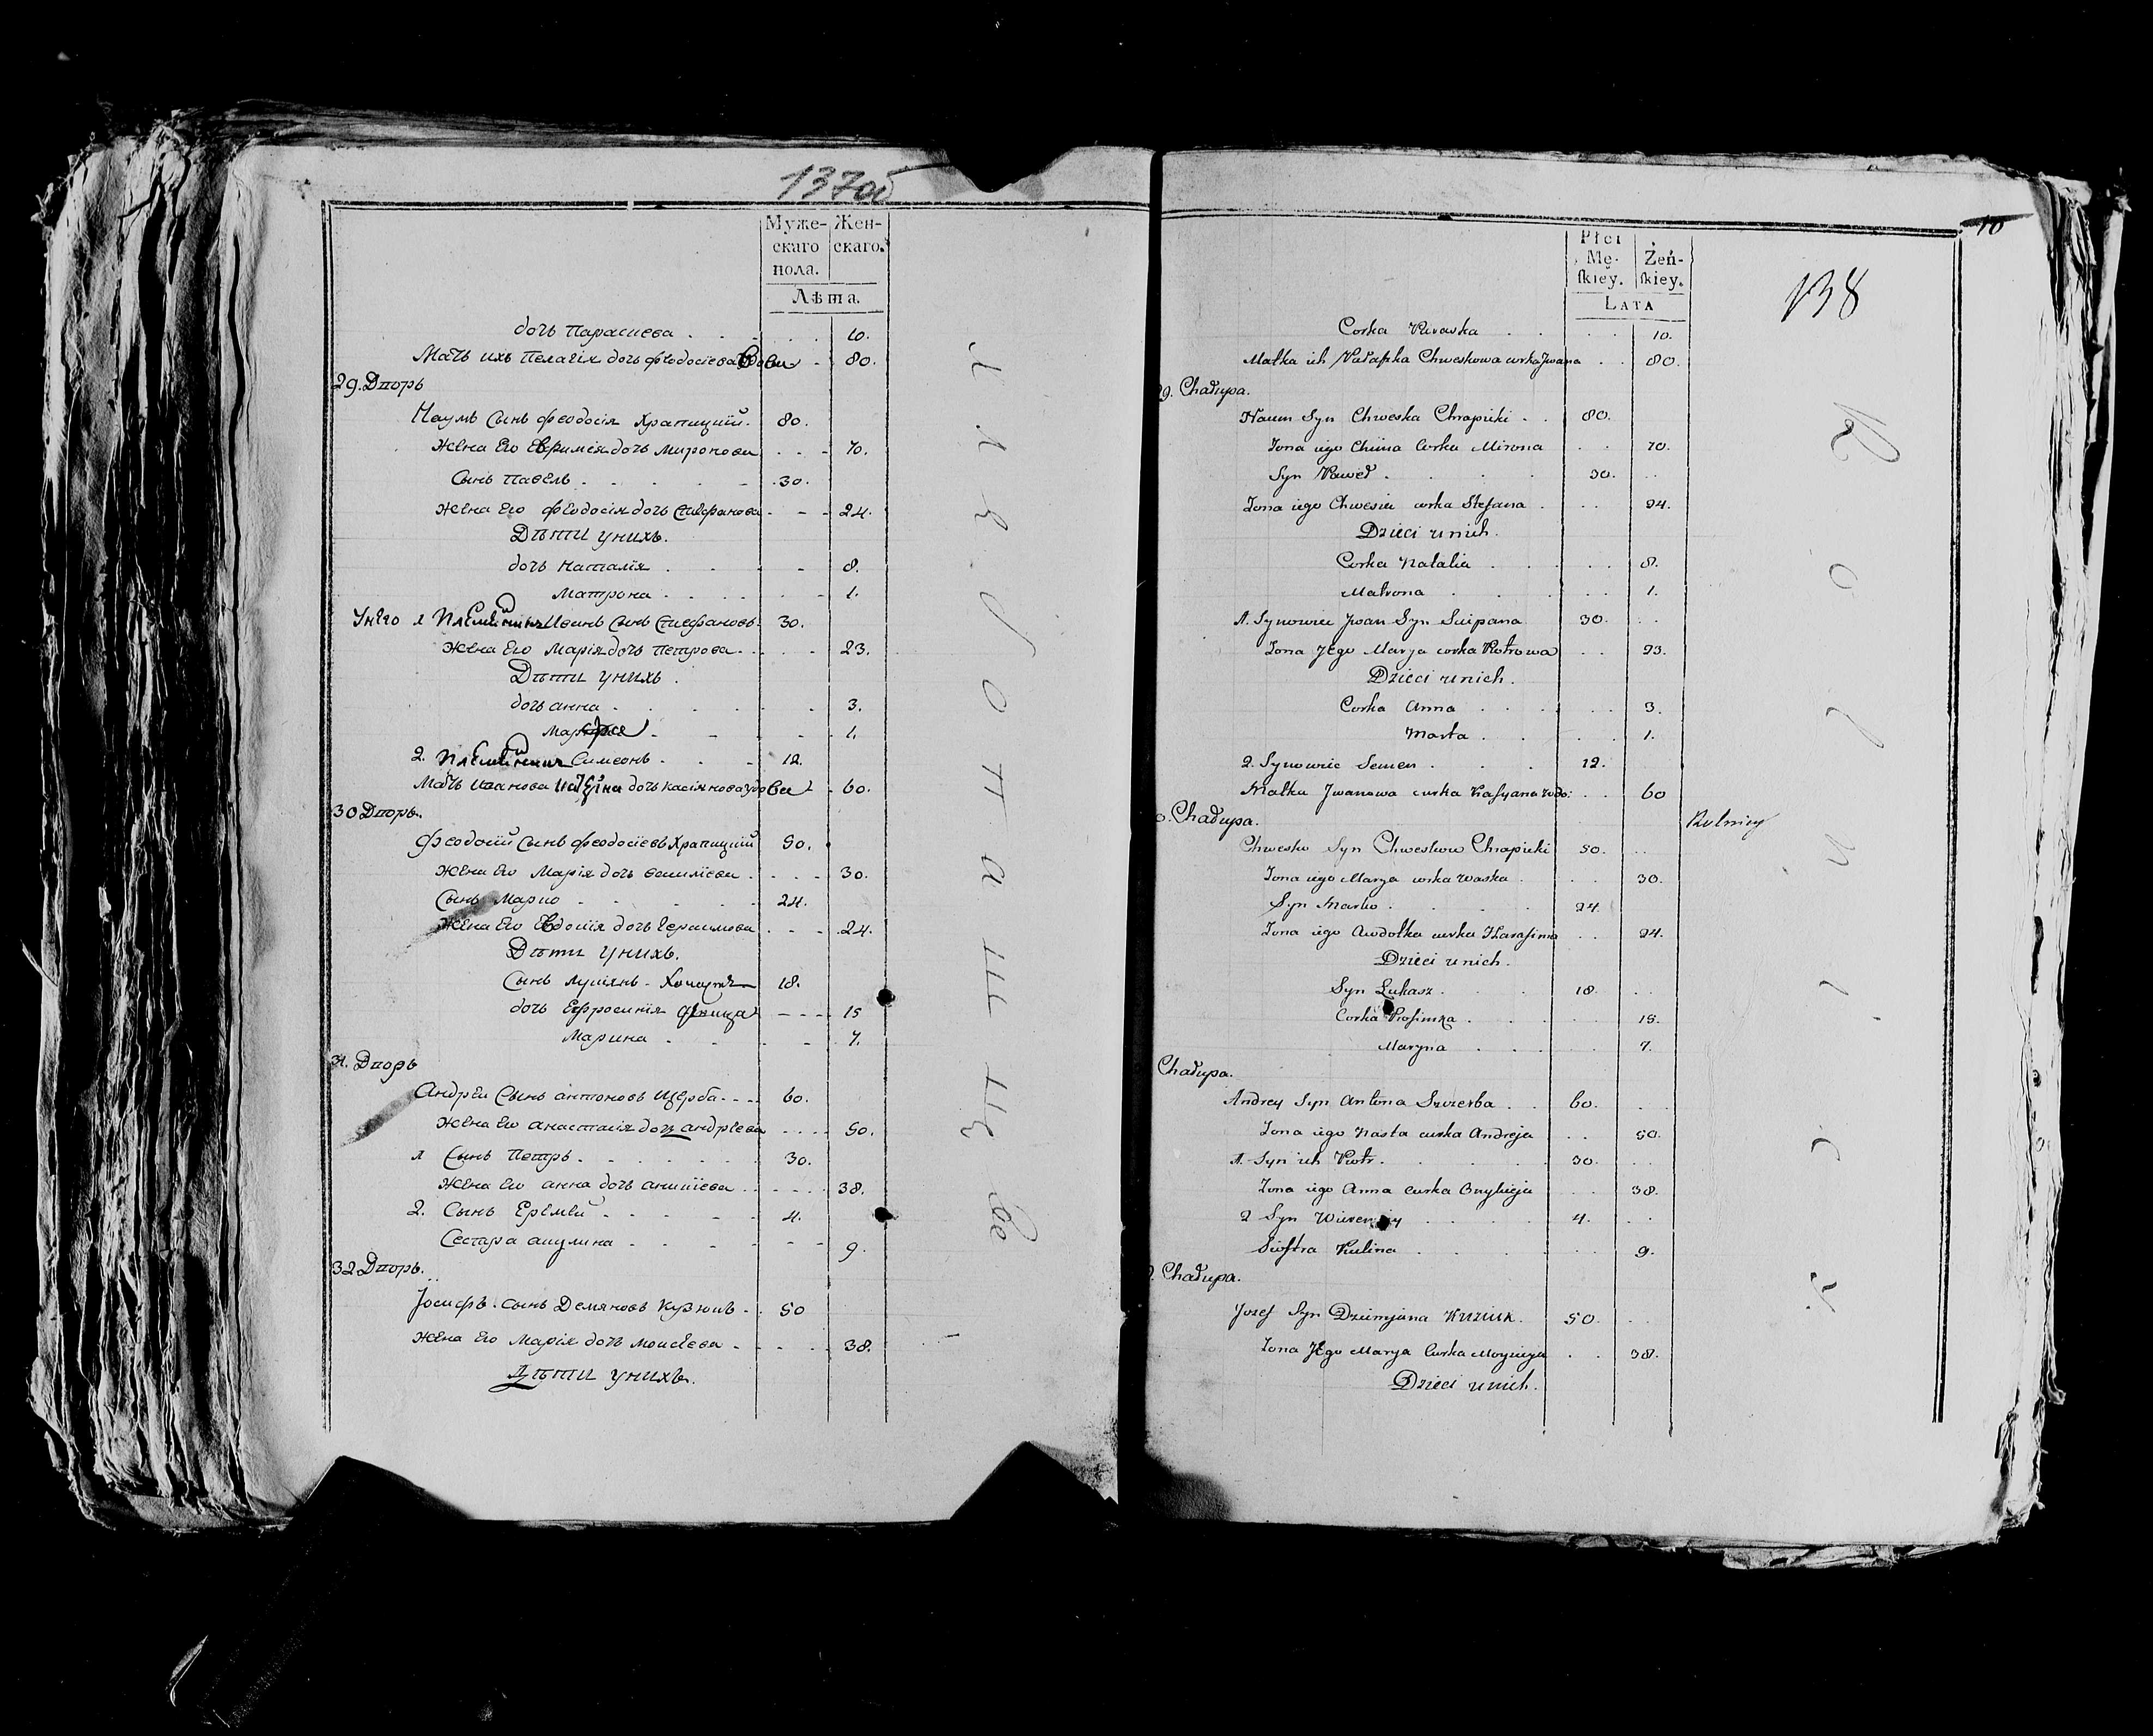 137об
Муже-
скаго
пола.
Жен-
скаго.
Лѣта.
дочь Парасиева . . . . 10.
Мать ихъ Пелагія дочь Феодосіева Вдова - 80.
29. Дворъ
Наумъ Сынъ Феодосія Храпицкій. 80.
Жена Его Евфимія дочь Миронова . . - 70.
Сынъ Павелъ . . . . - 30.
Жена Его Феодосія дочь Стефанова . - - 24.
Дѣти у нихъ.
дочь Наталія . . . - 8.
Матрона . . . . - 1.
У него 1 Племянникъ Иванъ Сынъ Стефановъ. 30.
Жена Его Марія дочь Петрова . . . . 23.
Дѣти у нихъ.
дочь Анна . . . . . 3.
Марфа . - - . 1.
2. Племянникъ Симеонъ . . . - 12.
Мать Иванова дочь Касіянова удова - 60.
30 Дворъ.
Феодосій Сынъ Феодосіевъ Храпицкій 50.
Жена Его Марія дочь Василіева . . . - 30.
Сынъ Марко . . . . . 24.
Жена Его Евдокія дочь Герасимова . . . 24.
Дѣти у нихъ.
Сынъ Лукіянъ - Холостъ 18.
дочь Ефросинія девица - - - 15
Марина . . . . - 7.
31. Дворъ
Андрей Сынъ Антоновъ Щерба . . - - 60.
Жена Его Анастасія дочь Андрѣева . . . . 50.
1 Сынъ Петръ . . . . . . 30.
Жена Его Анна дочь . . - . . . 38.
2. Сынъ Еремѣй . . . . - . 4.
Сестра Акулина . . . . - - 9.
32 Дворъ.
Іосифъ сынъ Демяновъ Кузюкъ . . 50
Жена Его Марія дочь Моисѣева . . . . 38.
Дѣти у нихъ.
10
138
Płci
Mę-
ſkiey.
Żeń-
ſkiey.
LATA
Corka Paraska . . . . 10.
Matka ich Chweskowa corka Jwana . . 80.
29. Chałupa.
Naum Syn Chweska Chrapicki . . 80.
Zona iego Chima Corka Mirona . . 70.
Syn Paweł . . . . 30. . .
Zona iego Chwesia corka Stefana . . . 24.
Dzieci u nich.
Corka Natalia . . . . . 8.
Matrona . . . . . 1.
1. Synowiec Jwan Syn Scipana 30. . .
Zona Jego Marya corka Piotrowa . . 23.
Dzieci u nich.
Corka Anna . . . . . 3.
Marta . . . . 1.
2. Synowiec Semen . . . 12.
Matka Jwanowa corka Kasyana wdo: . . 60
30. Chałupa.
Rolniey
Chwesko Syn Chweskow Chrapicki 50. . .
Zona iego Marya corka Waska . . . 30.
Syn Marko . . . . 24.
Zona iego Awdotka corka Harasima . . 24.
Dzieci u nich.
Syn Lukasz . . . 18. . .
Corka Prosimka . . . . 15.
Maryna . . . . 7.
Chałupa.
Andrey Syn Antona Szczerba . . 60. . .
Zona iego Nasta corka Andreja . . 50.
1. Syn ich Piotr . . . . 30. . .
Zona iego Anna corka . . 38.
2 Syn . . . . 4. . .
Siostra Kulina . . . . . . 9.
Chałupa.
Jozef Syn Dziemjana Kuziuk . 50. . .
Zona Jego Marya Corka Moyzieja . . 38.
Dzieci u nich.